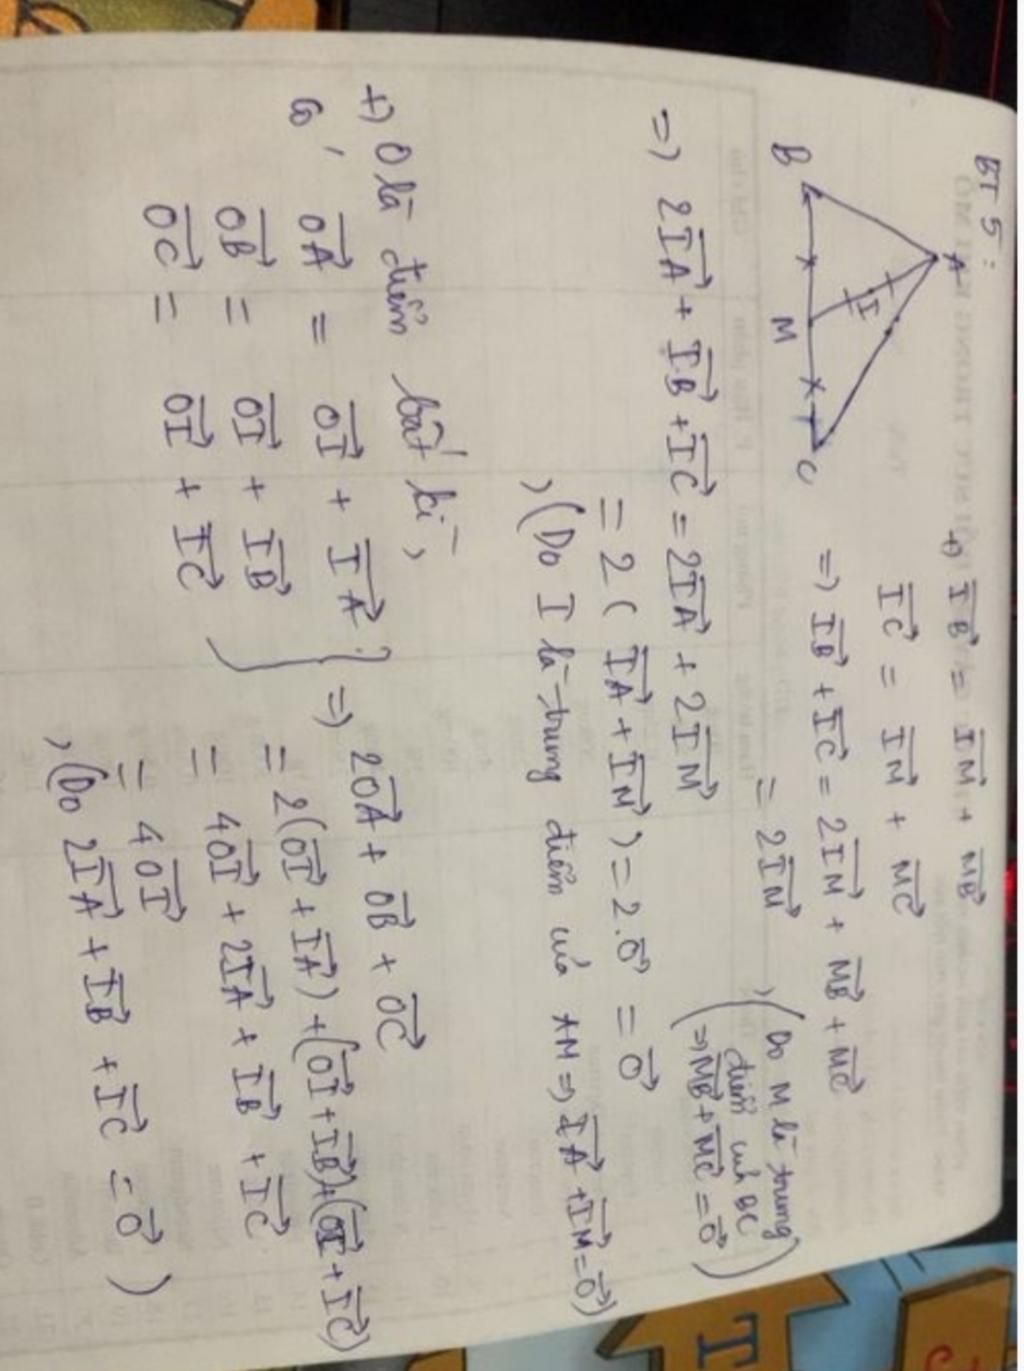 BT 5:
A
I
B
M
C
+) $\overrightarrow{IB} = \overrightarrow{IM} + \overrightarrow{MB}$
$\overrightarrow{IC} = \overrightarrow{IM} + \overrightarrow{MC}$
=) $\overrightarrow{IB} + \overrightarrow{IC} = 2\overrightarrow{IM} + \overrightarrow{MB} + \overrightarrow{MC}$
$= 2\overrightarrow{IM}$, (Do M là trung
điểm của BC
=) $\overrightarrow{MB} + \overrightarrow{MC} = \vec{0}$)
=) $2\overrightarrow{IA} + \overrightarrow{IB} + \overrightarrow{IC} = 2\overrightarrow{IA} + 2\overrightarrow{IM}$
$= 2(\overrightarrow{IA} + \overrightarrow{IM}) = 2.\vec{0} = \vec{0}$
, (Do I là trung điểm của AM =) $\overrightarrow{IA} + \overrightarrow{IM} = \vec{0}$)
+) O là điểm bất kì,
có, $\overrightarrow{OA} = \overrightarrow{OI} + \overrightarrow{IA}$
$\overrightarrow{OB} = \overrightarrow{OI} + \overrightarrow{IB}$
$\overrightarrow{OC} = \overrightarrow{OI} + \overrightarrow{IC}$
} =) $2\overrightarrow{OA} + \overrightarrow{OB} + \overrightarrow{OC}$
$= 2(\overrightarrow{OI} + \overrightarrow{IA}) + (\overrightarrow{OI} + \overrightarrow{IB}) + (\overrightarrow{OI} + \overrightarrow{IC})$
$= 4\overrightarrow{OI} + 2\overrightarrow{IA} + \overrightarrow{IB} + \overrightarrow{IC}$
$= 4\overrightarrow{OI}$
, (Do $2\overrightarrow{IA} + \overrightarrow{IB} + \overrightarrow{IC} = \vec{0}$)